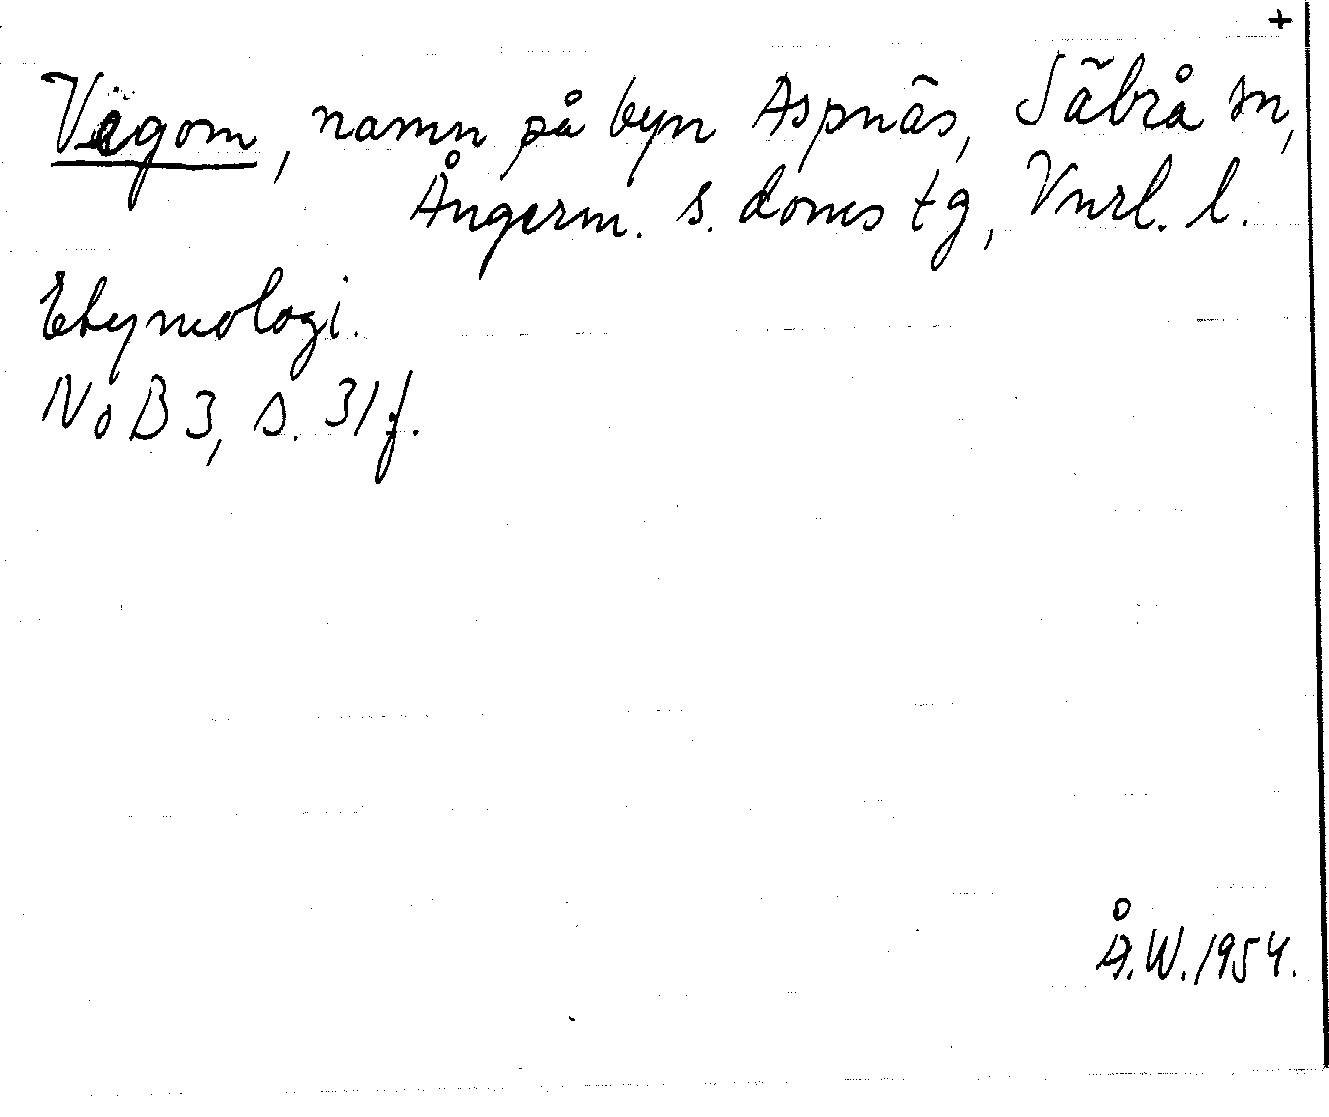 +
Vägom, namn på byn Aspnäs, Säbrå sn,
Ångerm. s. doms tg, Vnrl. l.
Etymologi.
NoB 3, s. 31 f.
Å.W. 1954.